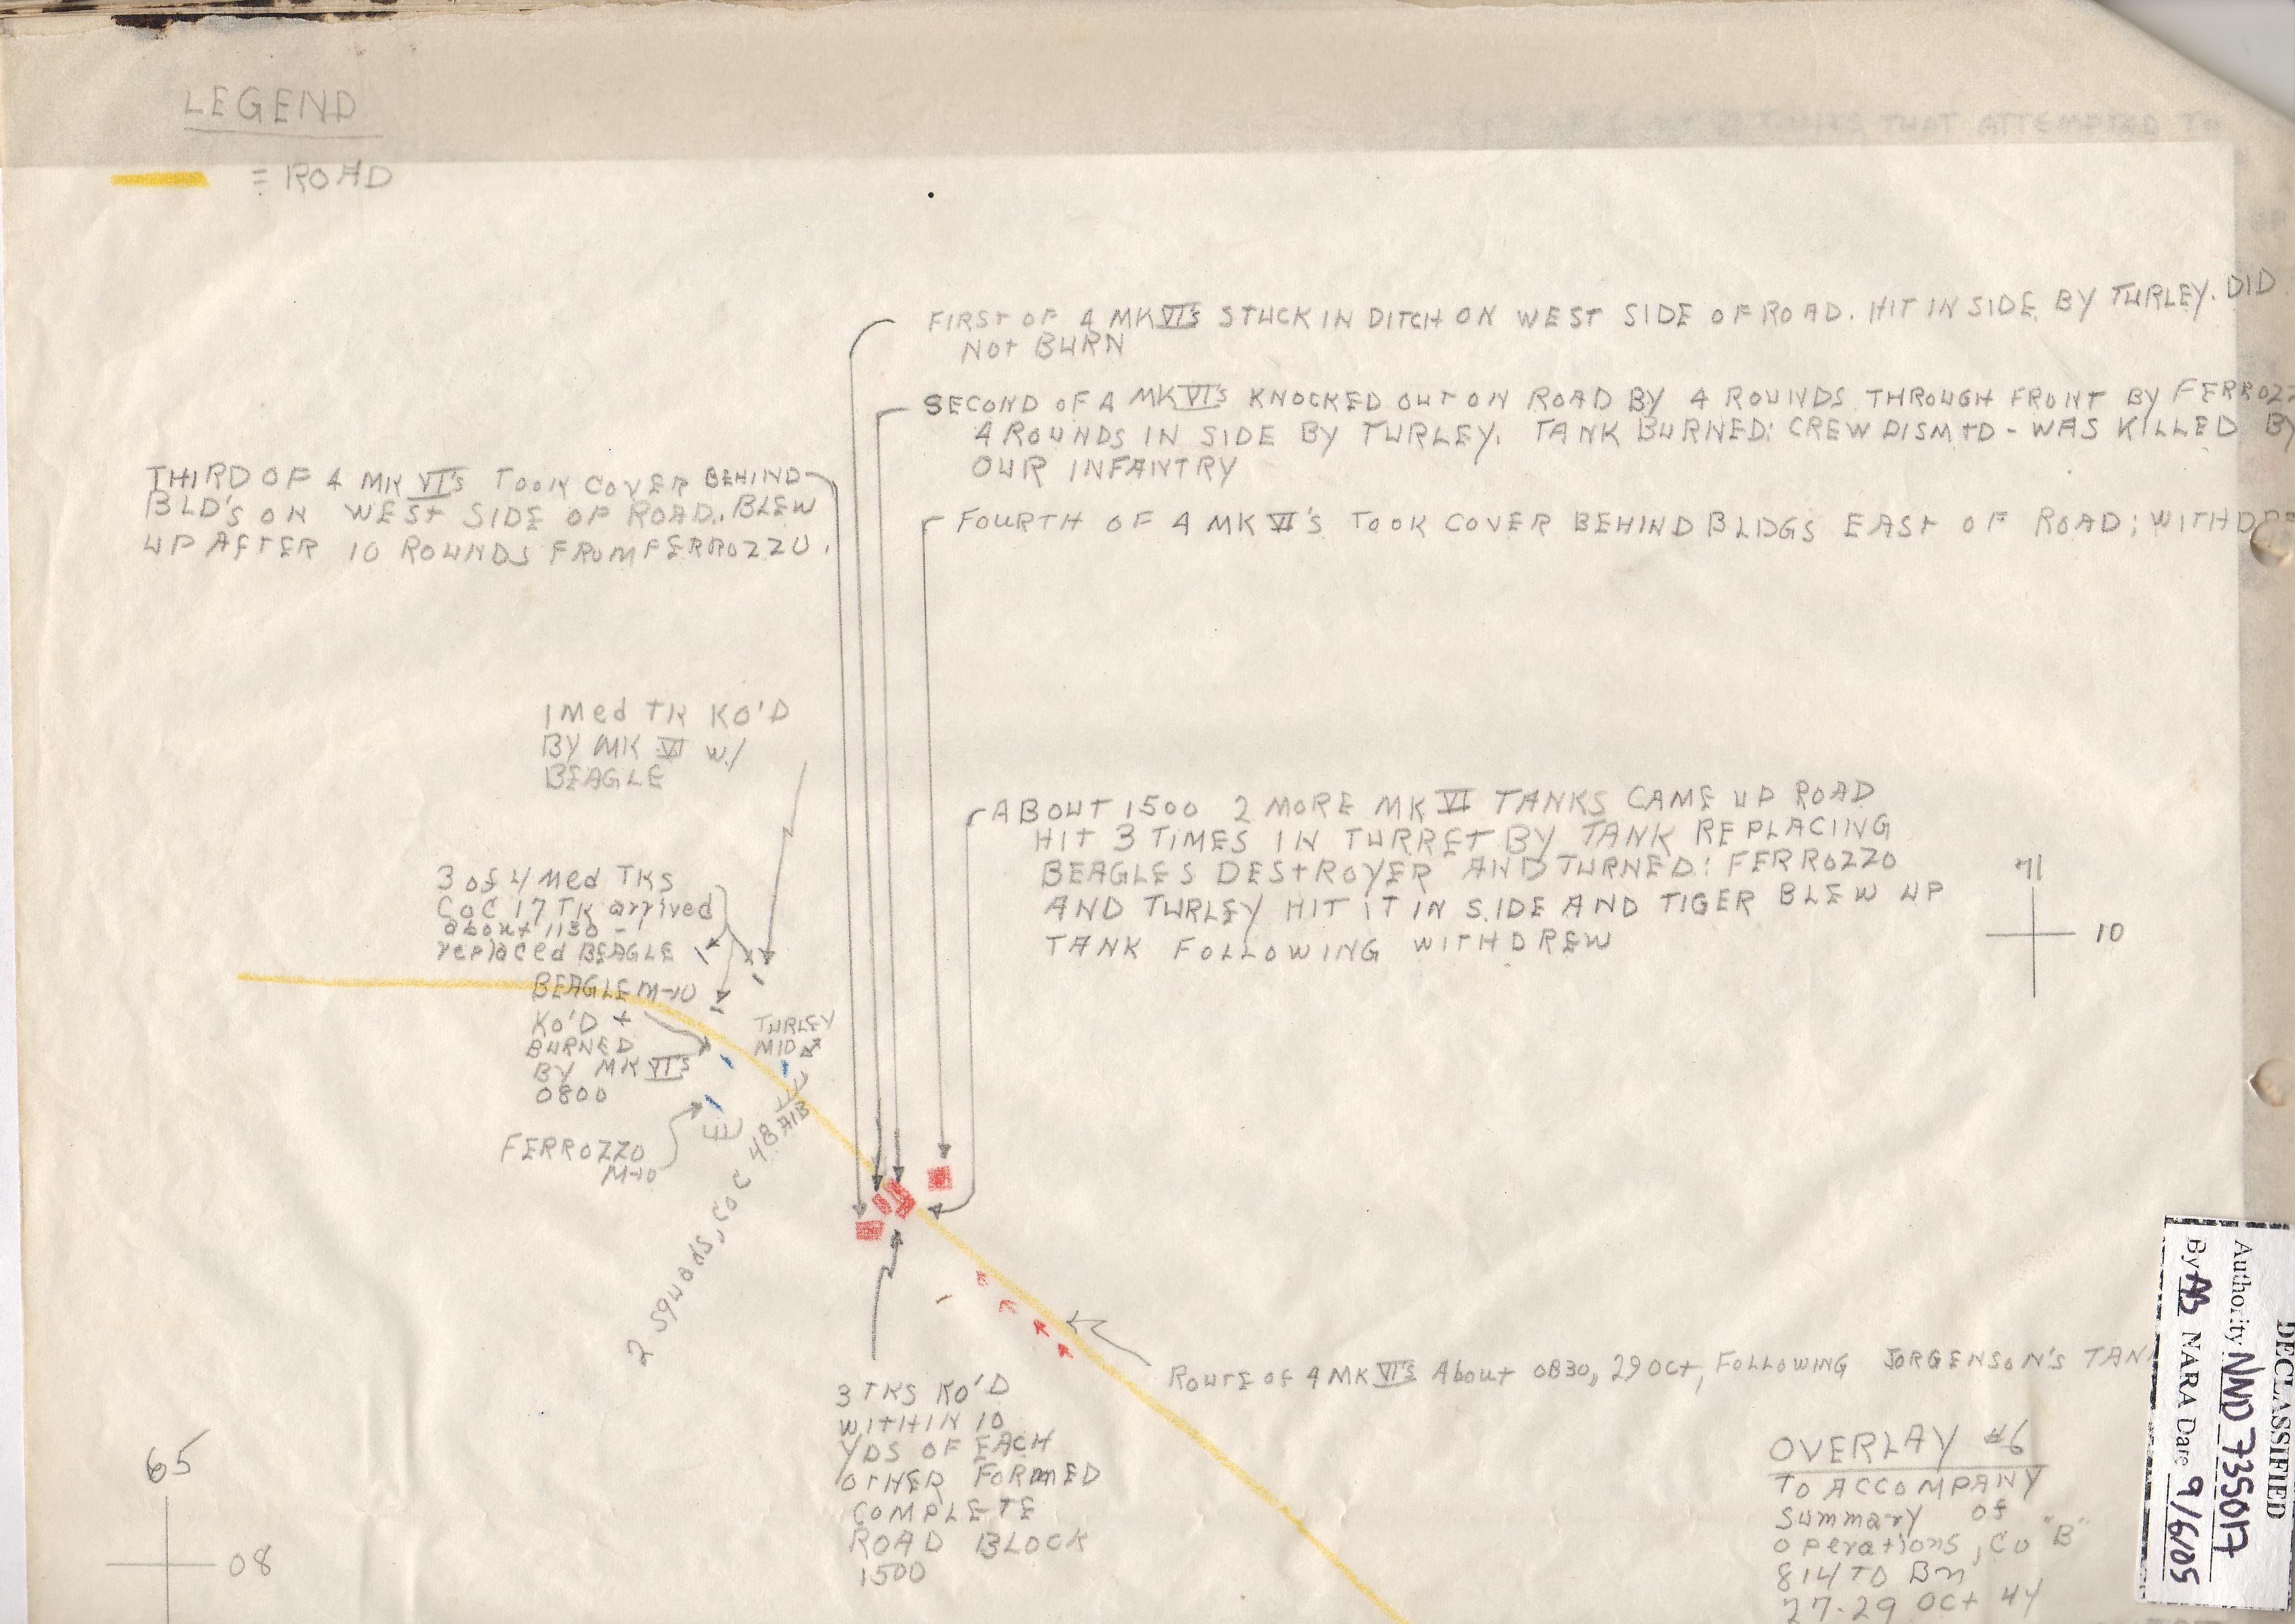 LEGEND
= ROAD
TANKS THAT ATTEMPTED TO
FIRST OF 4 MK VI's STUCK IN DITCH ON WEST SIDE OF ROAD. HIT IN SIDE BY TURLEY. DID
NOT BURN
SECOND OF 4 MK VI's KNOCKED OUT ON ROAD BY 4 ROUNDS THROUGH FRONT BY FERROZZ
4 ROUNDS IN SIDE BY TURLEY. TANK BURNED: CREW DISMTD - WAS KILLED BY
OUR INFANTRY
THIRD OF 4 MK VI's TOOK COVER BEHIND
BLD'S ON WEST SIDE OF ROAD. BLEW
UP AFTER 10 ROUNDS FROM FERROZZO.
FOURTH OF 4 MK VI's TOOK COVER BEHIND BLDGS EAST OF ROAD; WITHDR
1 Med TK KO'D
BY MK VI w/
BEAGLE
ABOUT 1500 2 MORE MK VI TANKS CAME UP ROAD
HIT 3 TIMES IN TURRET BY TANK REPLACIING
BEAGLES DESTROYER AND TURNED: FERROZZO
AND TURLEY HIT IT IN SIDE AND TIGER BLEW UP
TANK FOLLOWING WITHDREW
71
10
3 of 4 Med TKS
CoC 17 TK arrived
about 1130 -
replaced BEAGLE
BEAGLE M-10
KO'D +
BURNED
BY MK VI's
0800
TURLEY
M10
FERROZZO
M-10
2 squads, CoC 48 AIB
ROUTE OF 4 MK VI's About 0830, 29 Oct, FOLLOWING JORGENSON'S TAN
3 TKS KO'D
WITHIN 10
YDS OF EACH
OTHER FORMED
COMPLETE
ROAD BLOCK
1500
65
08
OVERLAY #6
TO ACCOMPANY
Summary of
operations, Co "B"
814 TD Bn
27-29 Oct 44
DECLASSIFIED
Authority NND 735017
By AB NARA Date 9/6/05